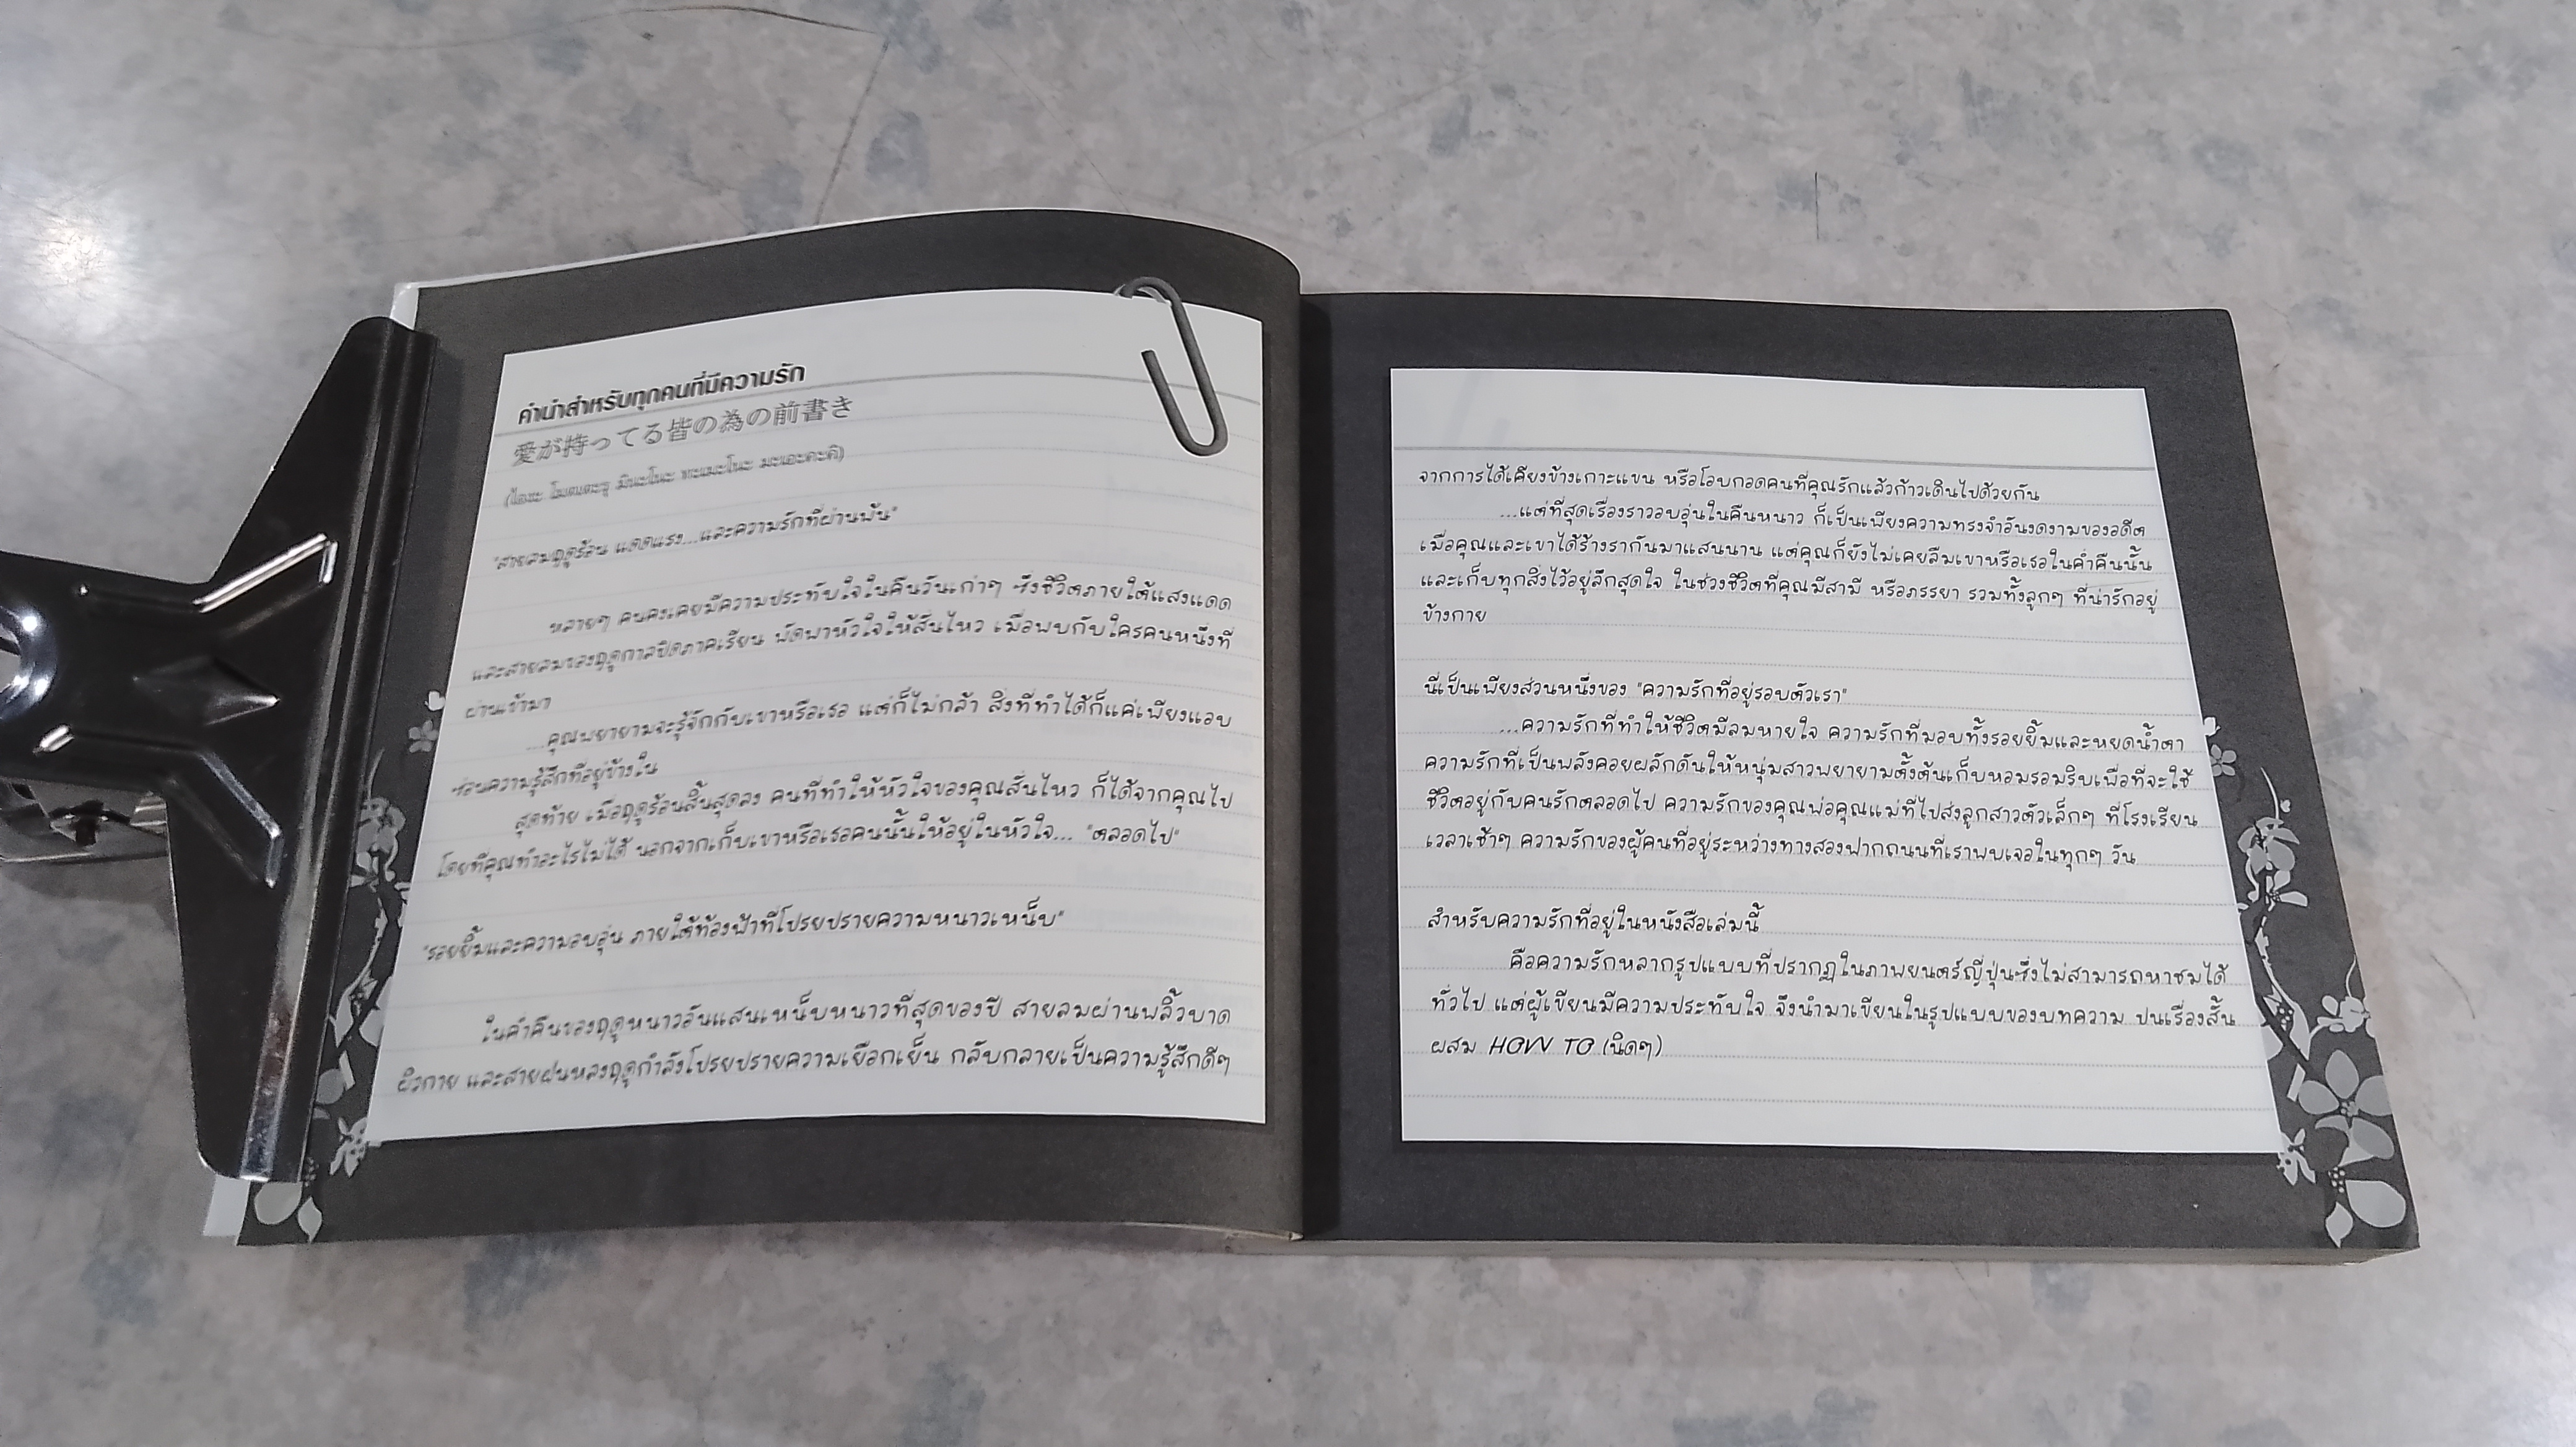 คำนำสำหรับทุกคนที่มีความรัก
愛が持ってる皆の為の前書き
(ไอกะ โมตเตะรุ มินะโนะ ทะเมะโนะ มะเอะคะคิ)
"สายลมฤดูร้อน แดดแรง...และความรักที่ผ่านพ้น"
หลายๆ คนคงเคยมีความประทับใจในคืนวันเก่าๆ ซึ่งชีวิตภายใต้แสงแดด
และสายลมของฤดูกาลปิดภาคเรียน พัดพาหัวใจให้สั่นไหว เมื่อพบกับใครคนหนึ่งที่
ผ่านเข้ามา
...คุณพยายามจะรู้จักกับเขาหรือเธอ แต่ก็ไม่กล้า สิ่งที่ทำได้ก็แค่เพียงแอบ
ซ่อนความรู้สึกที่อยู่ข้างใน
สุดท้าย เมื่อฤดูร้อนสิ้นสุดลง คนที่ทำให้หัวใจของคุณสั่นไหว ก็ได้จากคุณไป
โดยที่คุณทำอะไรไม่ได้ นอกจากเก็บเขาหรือเธอคนนั้นให้อยู่ในหัวใจ... "ตลอดไป"
"รอยยิ้มและความอบอุ่น ภายใต้ท้องฟ้าที่โปรยปรายความหนาวเหน็บ"
ในค่ำคืนของฤดูหนาวอันแสนเหน็บหนาวที่สุดของปี สายลมผ่านพลิ้วบาด
ผิวกาย และสายฝนหลงฤดูกำลังโปรยปรายความเยือกเย็น กลับกลายเป็นความรู้สึกดีๆ
จากการได้เคียงข้างเกาะแขน หรือโอบกอดคนที่คุณรักแล้วก้าวเดินไปด้วยกัน
...แต่ที่สุดเรื่องราวอบอุ่นในคืนหนาว ก็เป็นเพียงความทรงจำอันงดงามของอดีต
เมื่อคุณและเขาได้ร้างรากันมาแสนนาน แต่คุณก็ยังไม่เคยลืมเขาหรือเธอในค่ำคืนนั้น
และเก็บทุกสิ่งไว้อยู่ลึกสุดใจ ในช่วงชีวิตที่คุณมีสามี หรือภรรยา รวมทั้งลูกๆ ที่น่ารักอยู่
ข้างกาย
นี่เป็นเพียงส่วนหนึ่งของ "ความรักที่อยู่รอบตัวเรา"
...ความรักที่ทำให้ชีวิตมีลมหายใจ ความรักที่มอบทั้งรอยยิ้มและหยดน้ำตา
ความรักที่เป็นพลังคอยผลักดันให้หนุ่มสาวพยายามตั้งต้นเก็บหอมรอมริบเพื่อที่จะใช้
ชีวิตอยู่กับคนรักตลอดไป ความรักของคุณพ่อคุณแม่ที่ไปส่งลูกสาวตัวเล็กๆ ที่โรงเรียน
เวลาเช้าๆ ความรักของผู้คนที่อยู่ระหว่างทางสองฟากถนนที่เราพบเจอในทุกๆ วัน
สำหรับความรักที่อยู่ในหนังสือเล่มนี้
คือความรักหลากรูปแบบที่ปรากฏในภาพยนตร์ญี่ปุ่นซึ่งไม่สามารถหาชมได้
ทั่วไป แต่ผู้เขียนมีความประทับใจ จึงนำมาเขียนในรูปแบบของบทความ ปนเรื่องสั้น
ผสม HOW TO (นิดๆ)